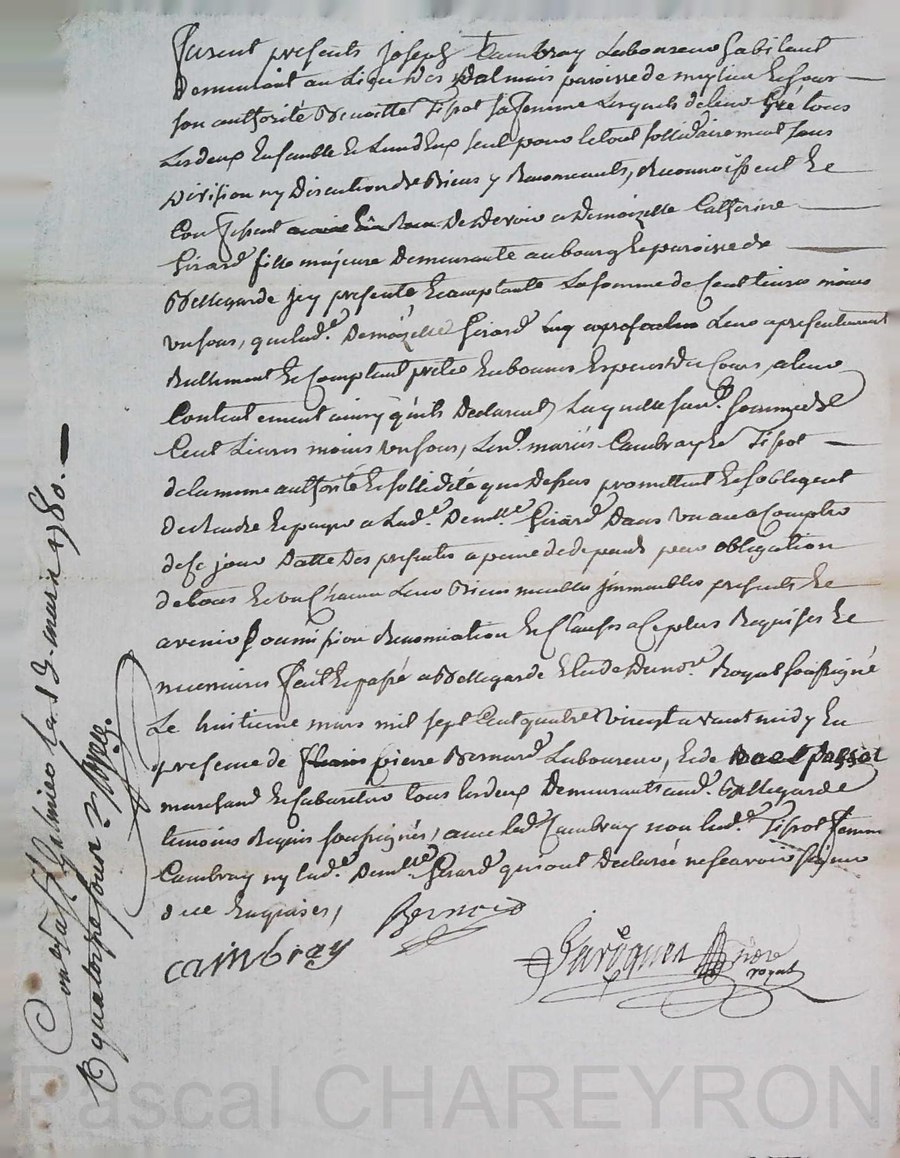 furent presents joseph Cambray Laboureur habitant
Demeurant au Lieu des palmais paroisse de meylieu Et sous
son authorité Benoitte Tissot sa femme Lesquels de leur gré tous
Les deux Ensemble Et Lun d'Eux seul pour le tout sollidairement sans
Division ny Discution de Biens y Renonceants, Reconnoissent Et
Confessent De Devoir a Demoizelle Catherine
Girard fille majeure Demeurante au bourg Et paroisse de
Bellegarde jcy presente Et acceptante La somme de Cent Livres moins
un sous, que lad.e Demoizelle Girard Leur a presentement
Reellement Et Comptant prêtée En bonnes Especes du Cours, a leur
Contentement ainsy qu'ils Declarent, Laquelle sus.e somme de
Cent Livres moins un sous, Les.d mariés Cambray Et Tissot
de la meme authorité Et sollidité que Dessus promettent Et s'obligent
de Rendre Et payer a Lad.e Dem.lle Girard Dans un an a Compter
de Ce jour Datte Des presentes a peine de depends pour obligation
de tous Et un Chacun Leurs Biens meubles jmmeubles presents Et
avenir soumission Renonciation Et Clauses a Ce plus Requises Et
necessaires fait Et passé a Bellegarde Etude du no.re Royal soussigné
Le huitieme mars mil sept Cent quatre vingt avant midy En
presence de pierre Bernard Laboureur, Et de
marchand Et Cabaretier tous les deux Demeurants aud. Bellegarde
temoins Requis soussignés, avec led. Cambray non lad.e Tissot femme
Cambray ny lad.e Dem.lle Girard qui ont Declaré ne scavoir signer
de ce Enquises,
cambray Bernard
no.re
royal
Con.lé a S.t Galmier le mars 1780.
R quatorze sous